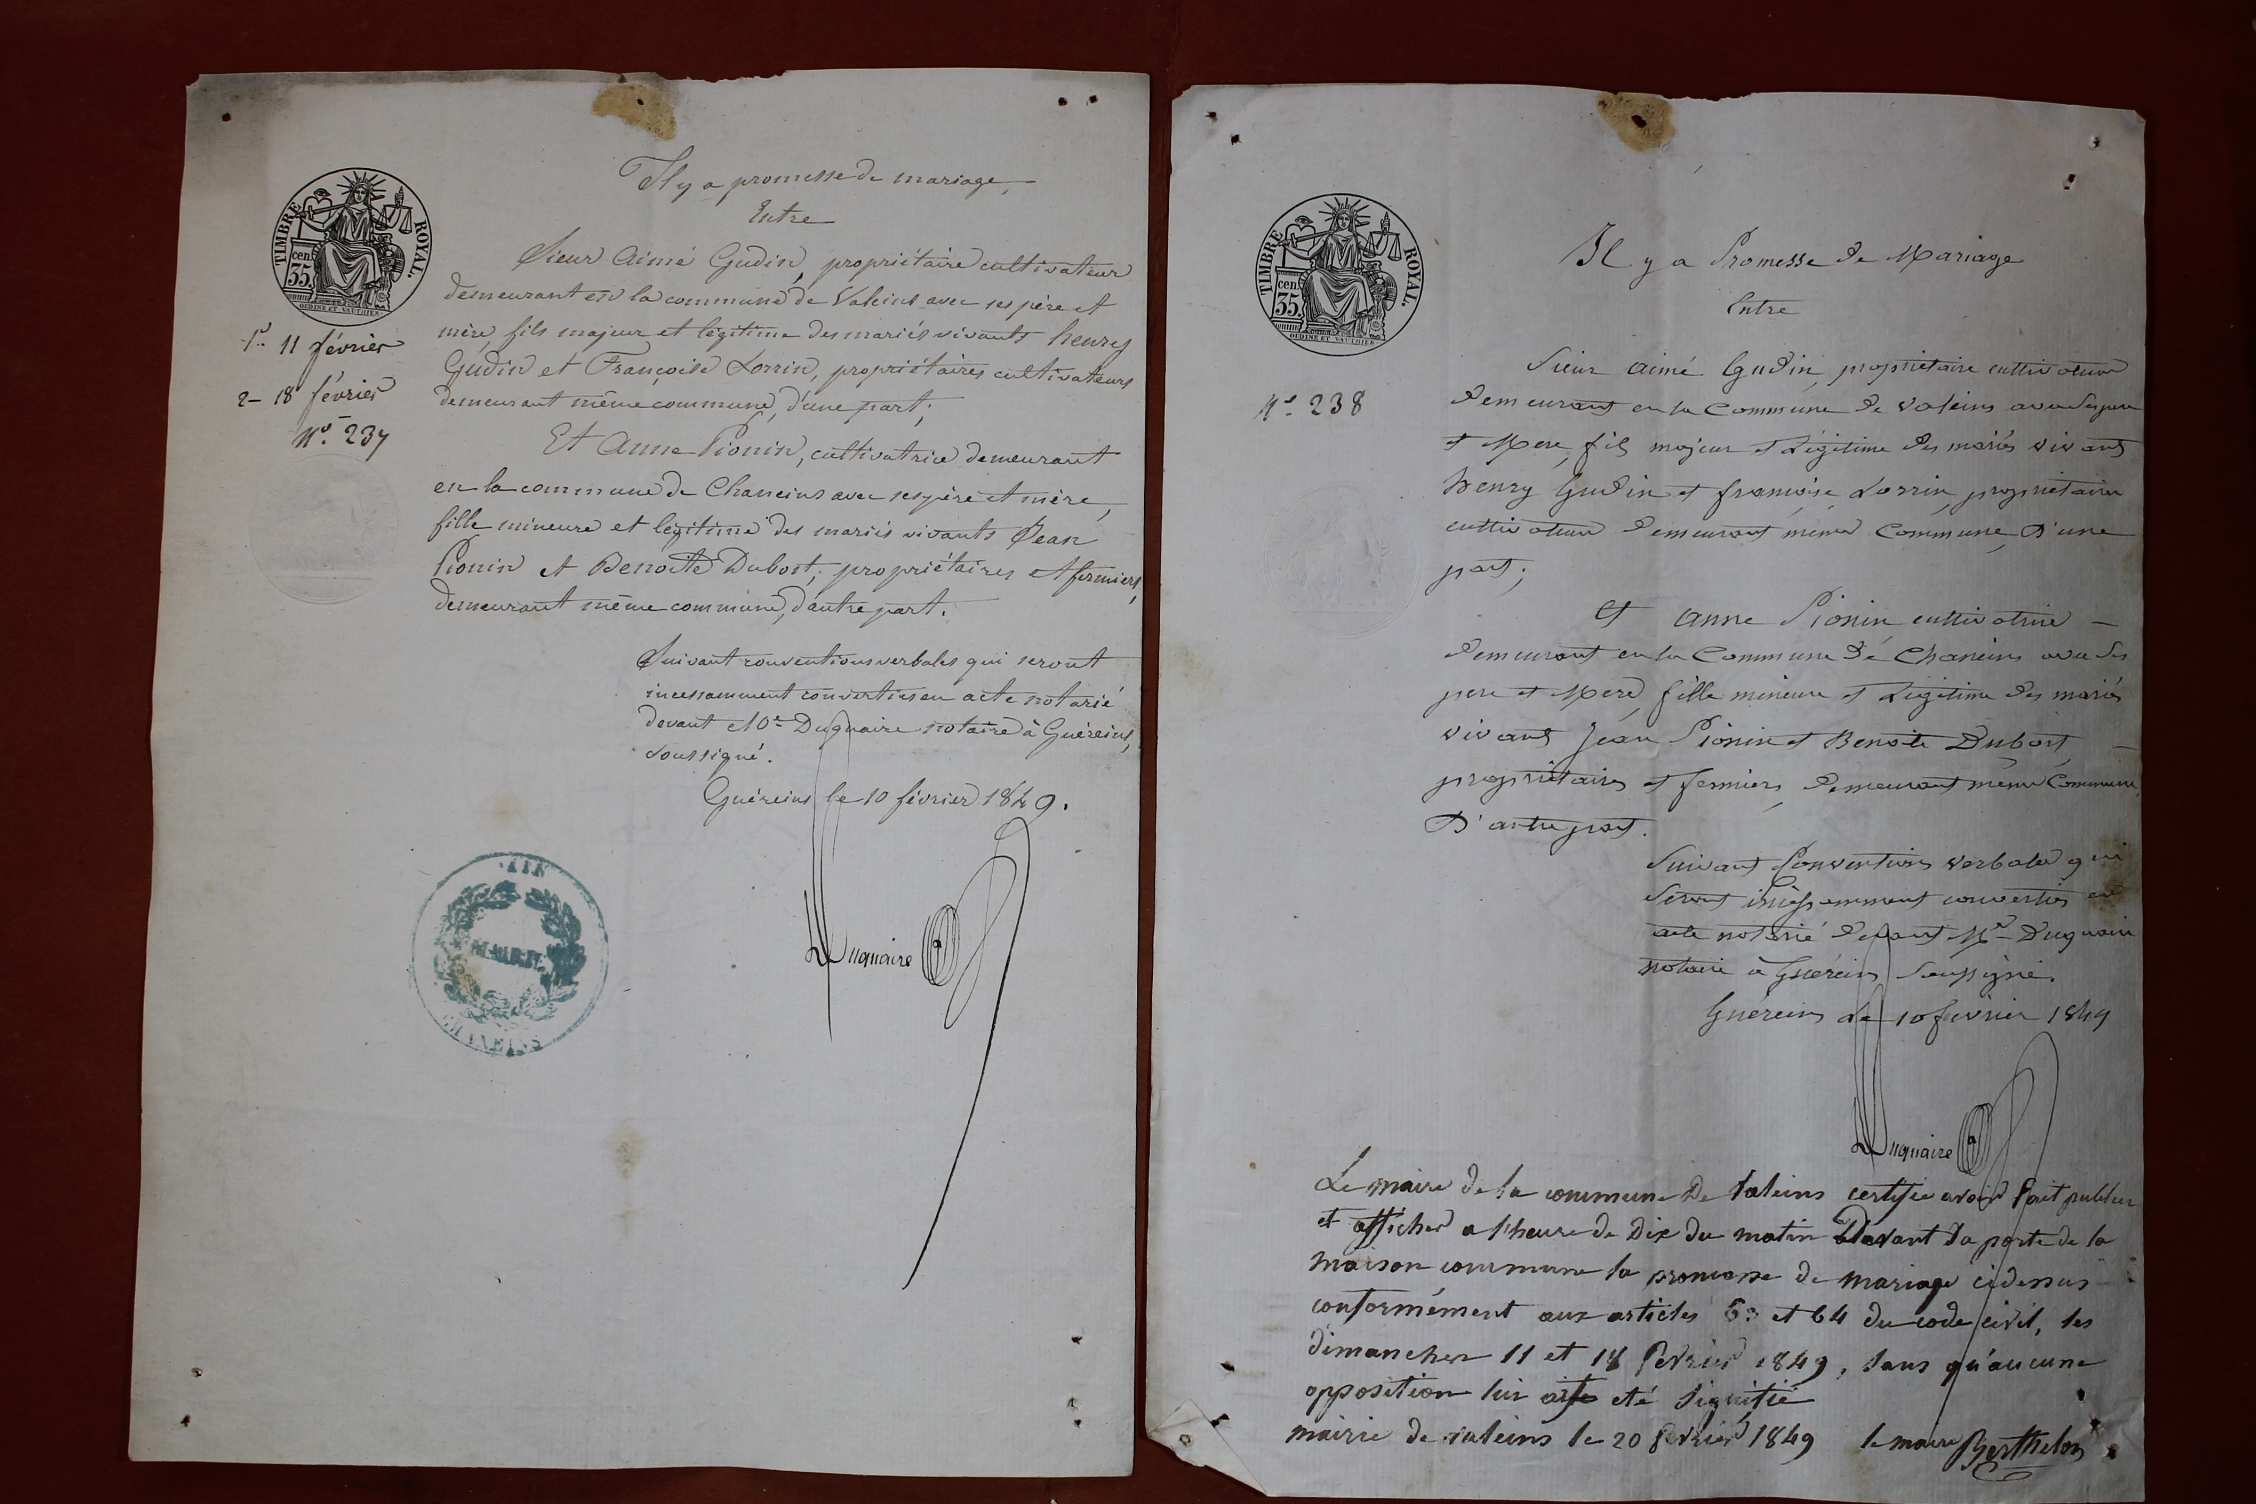 TIMBRE ROYAL.
cen.
35.
OUDINÉ ET VAUTHIER
Il y a promesse de mariage,
Entre
Sieur Aimé Gudin, propriétaire cultivateur
demeurant en la commune de Valeins avec ses père et
mère, fils majeur et légitime des mariés vivants henry
Gudin et Françoise Lorrin, propriétaires cultivateurs
demeurant même commune, d'une part;
Et Anne Pionin, cultivatrice demeurant
en la commune de Chaneins avec ses père et mère,
fille mineure et légitime des mariés vivants Jean
Pionin et Benoîte Dubost, propriétaires et fermiers,
demeurant même commune, d'autre part.
Suivant conventions verbales qui seront
incessamment converties en acte notarié
devant Me Duquaire notaire à Guéreins,
soussigné.
Guéreins le 10 février 1849.
Duquaire
1r. 11 février
2- 18 février
No. 237
AIN
MAIRIE
CHANEINS
TIMBRE ROYAL.
cen.
35.
OUDINÉ ET VAUTHIER
No. 238
Il y a Promesse de Mariage
Entre
Sieur aimé Gudin, propriétaire cultivateur
demeurant en la Commune de Valeins avec ses pere
et Mere, fils majeur et Légitime des mariés vivant
henry Gudin et françoise Lorrin, propriétaires
cultivateur demeurant même Commune, D'une
part;
et anne Pionin cultivatrice
demeurant en la Commune de Chaneins avec ses
pere et Mere, fille mineure et Légitime des mariés
vivant Jean Pionin et Benoite Dubost,
propriétaires et fermiers, demeurant même Commune,
D'autre part.
Suivant Conventions verbales qui
seront incessamment converties en
acte notarié devant Me Duquaire
notaire à Guéreins, soussigné.
Guéreins Le 10 février 1849
Duquaire
Le maire de la commune de Valeins certifie avoir fait publier
et afficher a l'heure de Dix du matin devant la porte de la
maison commune la promesse de mariage ci dessus
conformément aux articles 63 et 64 du code civil, les
dimanches 11 et 18 fevrier 1849, sans qu'aucune
opposition lui ait eté signifié
mairie de valeins le 20 fevrier 1849 le maire Berthelon